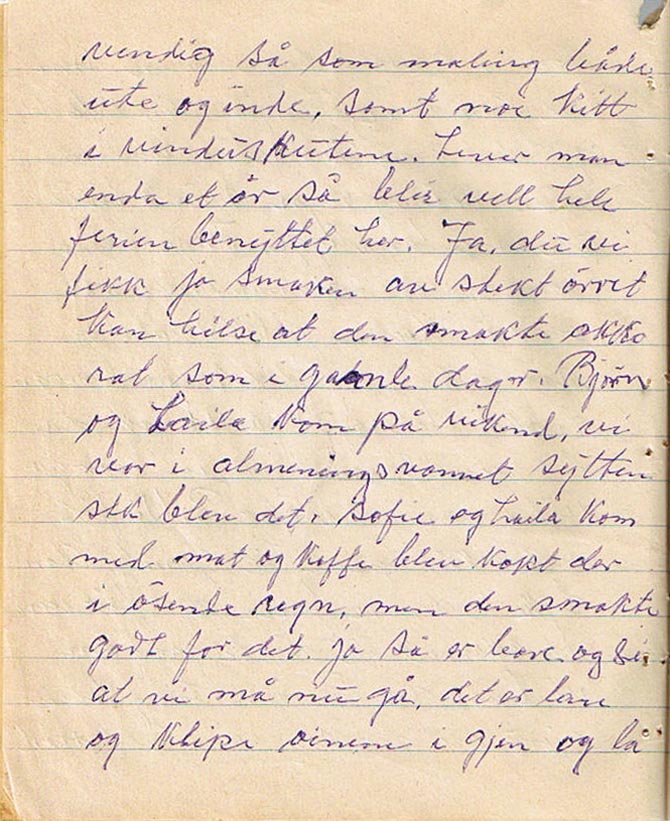 vendig så som maling både
ute og inde, samt noe kitt
i vindusrutene. Lever man
enda et år så blir vell hele
ferien benyttet her. Ja, du vi
fikk jo smaken av stekt örret
kan hilse at den smakte akku
rat som i gamle dager. Björn
og Laila kom på vikend, vi
var i almeningsvannet sytten
stk blev det. Sofie og Laila kom
med mat og kaffe blev kokt der
i ösende regn, men den smakte
godt for det. ja så er bare og si
at vi må nu gå, det er bare
og klipe öinene i gjen og la